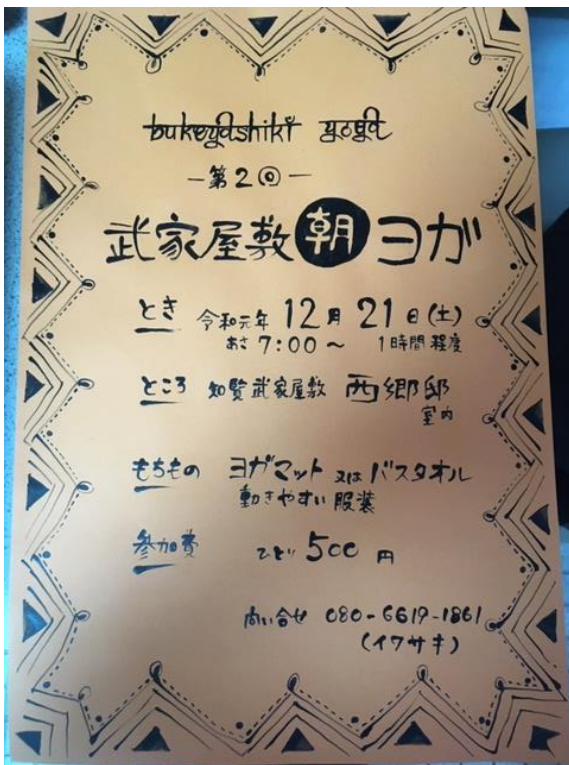 bukeyashiki yoga
-第2回-
武家屋敷朝ヨガ
とき 令和元年 12月 21日(土)
あさ 7:00〜 1時間程度
ところ 知覧武家屋敷 西郷邸
室内
もちもの ヨガマット 又は バスタオル
動きやすい服装
参加費 500円
問い合せ 080-6619-1861
(イワサキ)